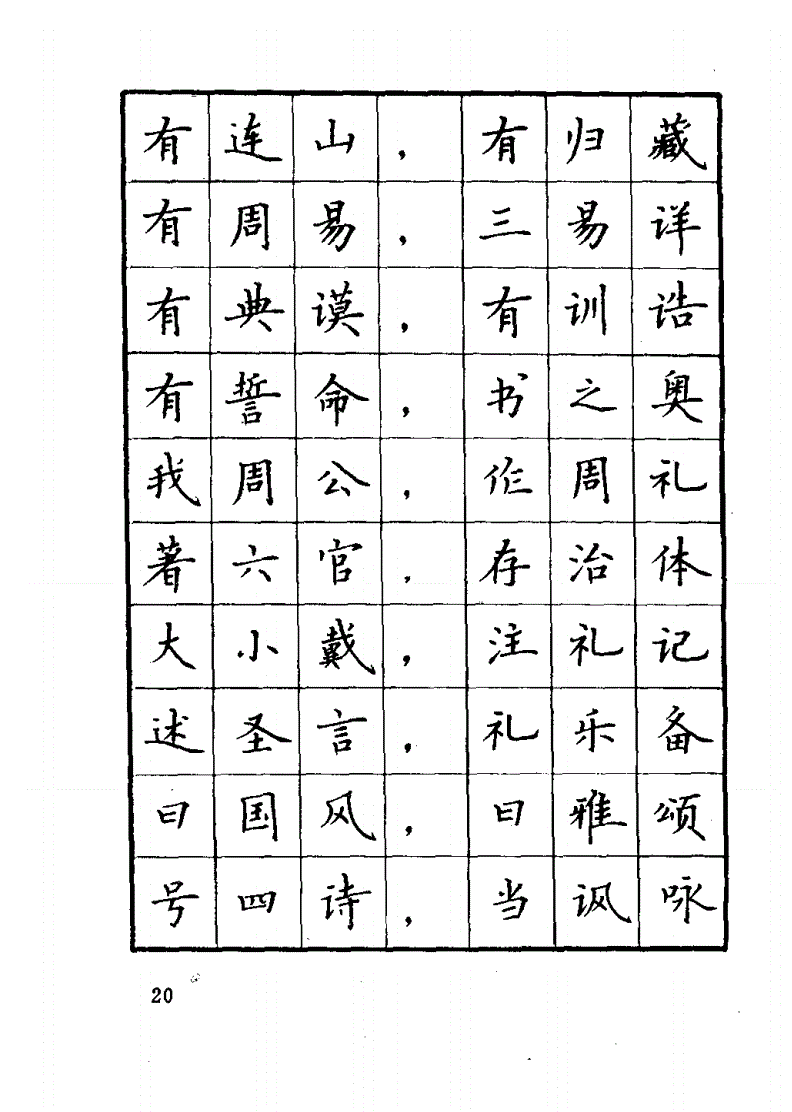 有连山，有归藏
有周易，三易详
有典谟，有训诰
有誓命，书之奥
我周公，作周礼
著六官，存治体
大小戴，注礼记
述圣言，礼乐备
曰国风，曰雅颂
号四诗，当讽咏
20